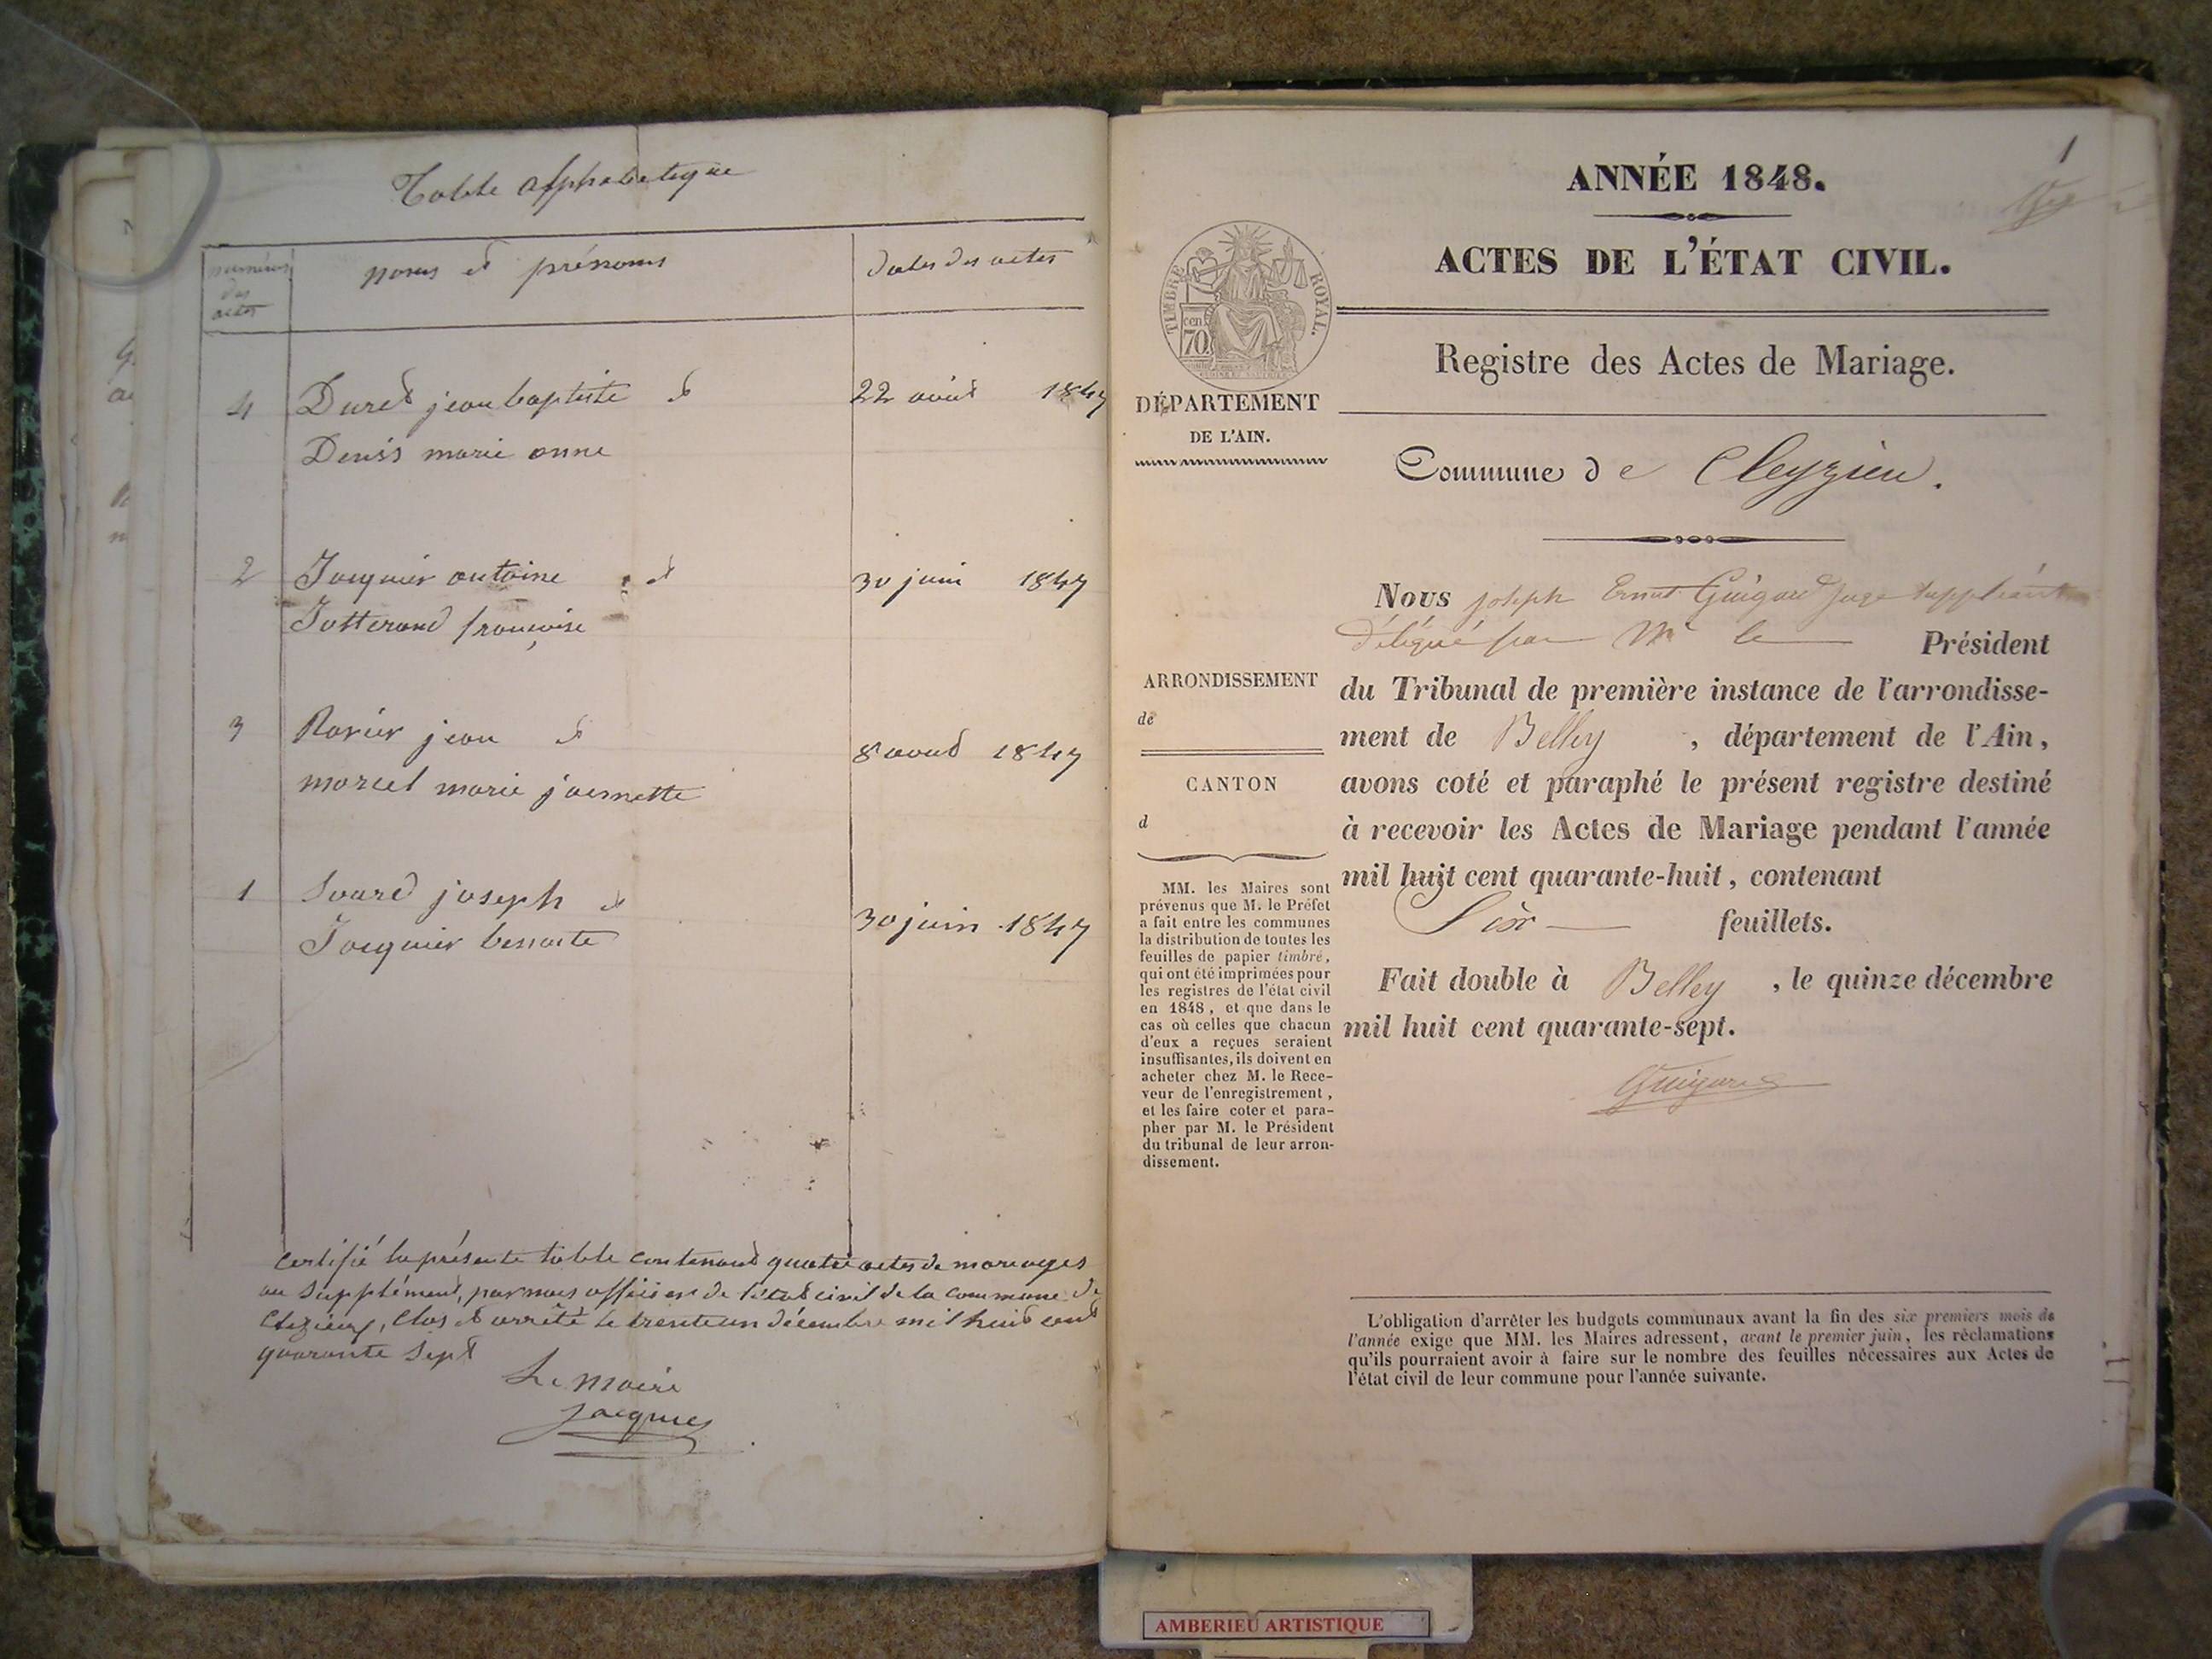 Table alphabetique
numéros des actes
noms et prénoms
dates des actes
4 Duret jean baptiste et 22 aout 1847
Denis marie anne
2 Jacquier antoine et 30 juin 1847
Jotterand françoise
3 Ravier jean et 8 aout 1847
marcel marie jacmette
1 Suard joseph et 30 juin 1847
Jacquier benoite
Certifié la présente table contenant quatre actes de mariages
au Supplément, par nous officier de l'état civil de la commune de
Cleyzieu, Clos et arrêté le trente un décembre mil huit cent
quarante Sept
Le maire
Jacquier
1
ANNÉE 1848.
ACTES DE L'ÉTAT CIVIL.
TIMBRE ROYAL.
cen. 70
Registre des Actes de Mariage.
DÉPARTEMENT
DE L'AIN.
Commune de Cleyzieu.
Nous joseph Ernest Guigard Juge Suppléant
Délégué par Mr le Président
du Tribunal de première instance de l'arrondisse-
ment de Belley , département de l'Ain,
avons coté et paraphé le présent registre destiné
à recevoir les Actes de Mariage pendant l'année
mil huit cent quarante-huit, contenant
Six feuillets.
Fait double à Belley , le quinze décembre
mil huit cent quarante-sept.
Guigard
ARRONDISSEMENT
de
CANTON
d
MM. les Maires sont
prévenus que M. le Préfet
a fait entre les communes
la distribution de toutes les
feuilles de papier timbré,
qui ont été imprimées pour
les registres de l'état civil
en 1848, et que dans le
cas où celles que chacun
d'eux a reçues seraient
insuffisantes, ils doivent en
acheter chez M. le Rece-
veur de l'enregistrement,
et les faire coter et para-
pher par M. le Président
du tribunal de leur arron-
dissement.
L'obligation d'arrêter les budgets communaux avant la fin des six premiers mois de
l'année exige que MM. les Maires adressent, avant le premier juin, les réclamations
qu'ils pourraient avoir à faire sur le nombre des feuilles nécessaires aux Actes de
l'état civil de leur commune pour l'année suivante.
AMBERIEU ARTISTIQUE